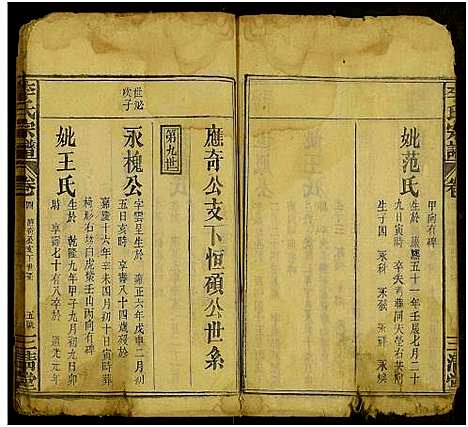 李氏宗譜
卷
三清堂
甲向有碑
妣范氏
康熙五十一年壬辰七月二十
九日寅時
生子四 永科 永弼 永祥 永槐
應奇公支下恒碩公世系
第九世
世忿
次子
永槐公
字雲呈生於 雍正六年戊申二月初
五日亥時 享壽八十四歲殁於
嘉慶十六年辛未四月初十日寅時葬
椅形右坊白虎嘴壬山丙向有碑
妣王氏
生於 乾隆九年甲子九月初九日卯
時 享壽七十有八卒於 道光元年
李氏宗譜
卷
四 應奇公支下世系
五
三清堂